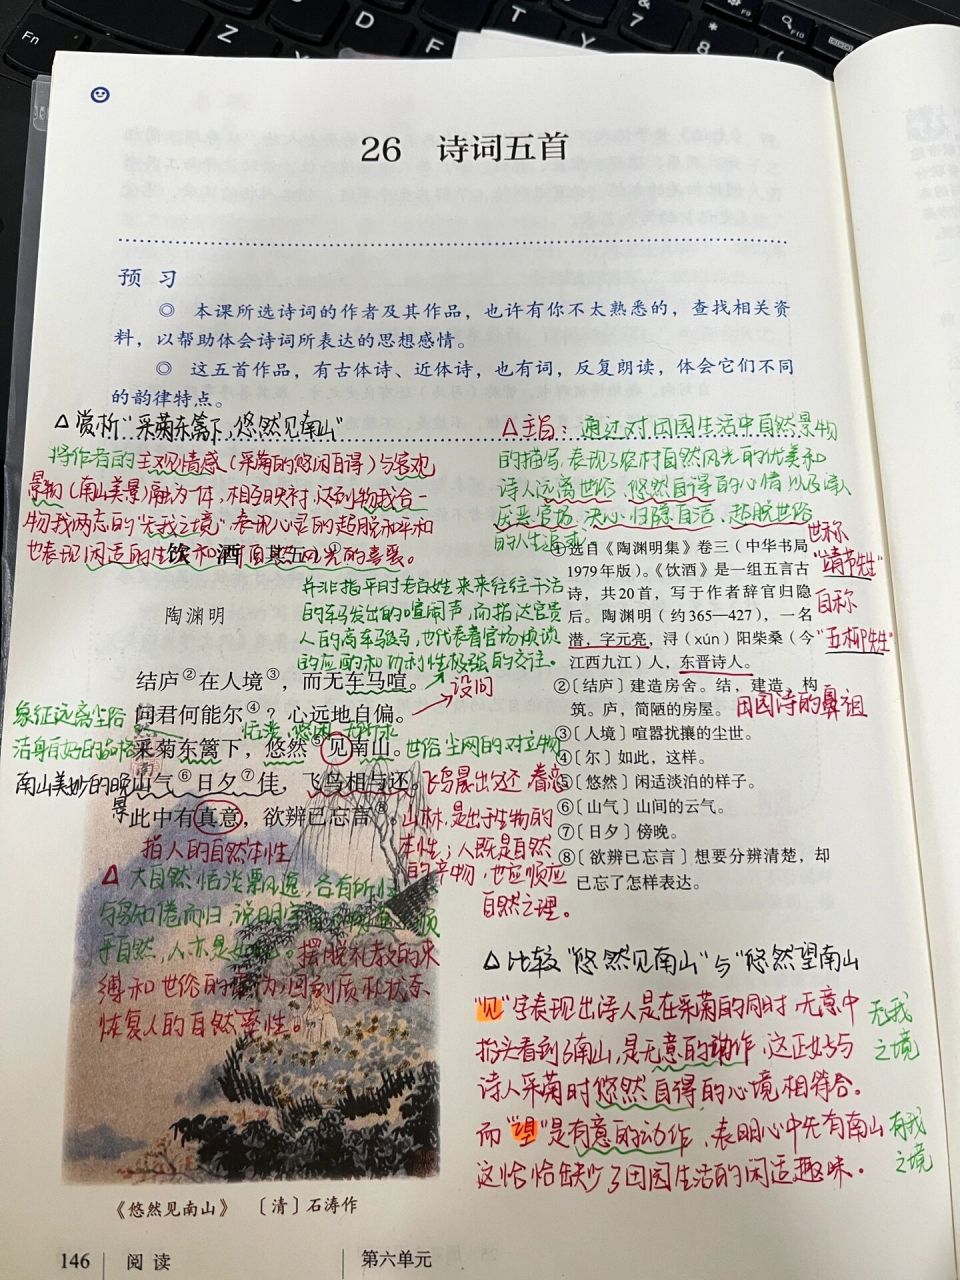 Fn
Z
D
F
T
&
7
*
8
F9
F10
26 诗词五首
预 习
◎ 本课所选诗词的作者及其作品，也许有你不太熟悉的，查找相关资
料，以帮助体会诗词所表达的思想感情。
◎ 这五首作品，有古体诗、近体诗，也有词，反复朗读，体会它们不同
的韵律特点。
△赏析"采菊东篱下，悠然见南山"
将作者的主观情感（采菊的悠闲自得）与客观
景物（南山美景）融为一体，相互映衬，达到物我合一
物我两忘的"无我之境"，表现心灵的超脱和平和
也表现闲适的生
的喜爱。
△主旨：通过对田园生活中自然景物
的描写，表现了农村自然风光的优美和
诗人远离世俗、悠然自得的心情以及诗人
厌恶官场、决心归隐自洁、超脱世俗
的人生追求。
饮 酒（其五）①
陶渊明
并非指平时老百姓来来往往干活
的车马发出的喧闹声，而指达官贵
人的高车驷马，也代表着官场
的应酬和功利性极强的交往。
结庐②在人境③，而无车马喧。
设问
问君何能尔④？心远地自偏。
象征远离尘俗
洁身自好的品格
采菊东篱下，悠然⑤见南山。
世俗尘网的对立物
南山美妙的晚景
山气⑥日夕⑦佳，飞鸟相与还。
飞鸟晨出夕还，眷恋
山林，是出于生物的
本性；人既是自然
的产物，也应顺应
自然之理。
此中有真意，欲辨已忘言⑧。
指人的自然本性
△大自然恬淡飘逸，各有所归
鸟知倦而归，说明宇
乎自然，人亦是如此。摆脱礼教的束
缚和世俗的
，回到质朴状态
恢复人的自然率性。
①选自《陶渊明集》卷三（中华书局
1979年版）。《饮酒》是一组五言古
诗，共20首，写于作者辞官归隐
后。陶渊明（约365—427），一名
潜，字元亮，浔（xún）阳柴桑（今
江西九江）人，东晋诗人。
世称
"靖节先生"
自称
"五柳先生"
田园诗的鼻祖
②〔结庐〕建造房舍。结，建造、构
筑。庐，简陋的房屋。
③〔人境〕喧嚣扰攘的尘世。
④〔尔〕如此，这样。
⑤〔悠然〕闲适淡泊的样子。
⑥〔山气〕山间的云气。
⑦〔日夕〕傍晚。
⑧〔欲辨已忘言〕想要分辨清楚，却
已忘了怎样表达。
△比较"悠然见南山"与"悠然望南山
"见"字表现出诗人是在采菊的同时无意中
抬头看到了南山，是无意的动作，这正好与
诗人采菊时悠然自得的心境相符合。
无我
之境
而"望"是有意的动作，表明心中先有南山
这恰恰缺少了田园生活的闲适趣味。
有我
之境
《悠然见南山》 〔清〕石涛作
146 阅读 第六单元